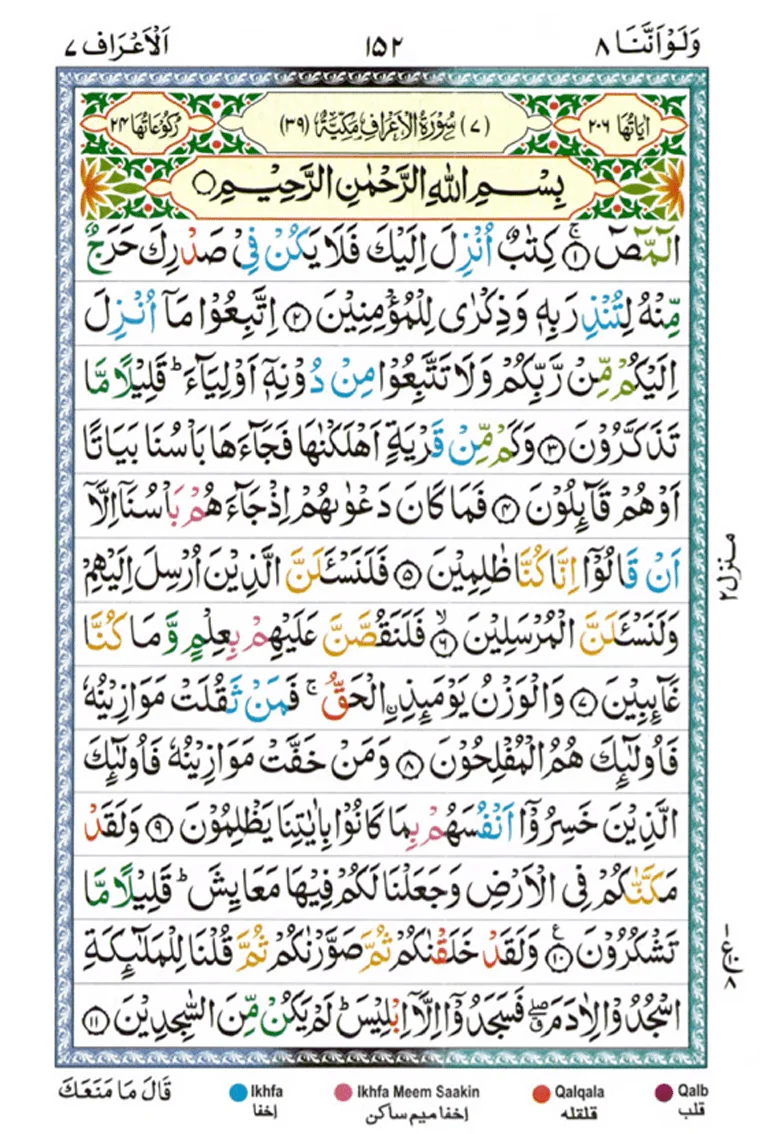 وَلَوْ اَنَّنَا ۸ ۱۵۲ اَلْاَعْرَاف ۷
اٰيَاتُهَا ۲۰۶ (۷) سُوْرَةُ الْاَعْرَافِ مَكِّيَّةٌ (۳۹) رُكُوْعَاتُهَا ۲۴
بِسْمِ اللهِ الرَّحْمٰنِ الرَّحِيْمِ
الٓمّٓصٓ ۚ ۱ كِتٰبٌ اُنْزِلَ اِلَيْكَ فَلَا يَكُنْ فِيْ صَدْرِكَ حَرَجٌ
مِّنْهُ لِتُنْذِرَ بِهٖ وَذِكْرٰى لِلْمُؤْمِنِيْنَ ۲ اِتَّبِعُوْا مَاۤ اُنْزِلَ
اِلَيْكُمْ مِّنْ رَّبِّكُمْ وَلَا تَتَّبِعُوْا مِنْ دُوْنِهٖۤ اَوْلِيَآءَ ؕ قَلِيْلًا مَّا
تَذَكَّرُوْنَ ۳ وَكَمْ مِّنْ قَرْيَةٍ اَهْلَكْنٰهَا فَجَآءَهَا بَاْسُنَا بَيَاتًا
اَوْ هُمْ قَآئِلُوْنَ ۴ فَمَا كَانَ دَعْوٰىهُمْ اِذْ جَآءَهُمْ بَاْسُنَاۤ اِلَّاۤ
اَنْ قَالُوْۤا اِنَّا كُنَّا ظٰلِمِيْنَ ۵ فَلَنَسْـَٔلَنَّ الَّذِيْنَ اُرْسِلَ اِلَيْهِمْ
وَلَنَسْـَٔلَنَّ الْمُرْسَلِيْنَ ۙ ۶ فَلَنَقُصَّنَّ عَلَيْهِمْ بِعِلْمٍ وَّمَا كُنَّا
غَآئِبِيْنَ ۷ وَالْوَزْنُ يَوْمَئِذِ ِۨالْحَقُّ ۚ فَمَنْ ثَقُلَتْ مَوَازِيْنُهٗ
فَاُولٰٓئِكَ هُمُ الْمُفْلِحُوْنَ ۸ وَمَنْ خَفَّتْ مَوَازِيْنُهٗ فَاُولٰٓئِكَ
الَّذِيْنَ خَسِرُوْۤا اَنْفُسَهُمْ بِمَا كَانُوْا بِاٰيٰتِنَا يَظْلِمُوْنَ ۹ وَلَقَدْ
مَكَّنّٰكُمْ فِي الْاَرْضِ وَجَعَلْنَا لَكُمْ فِيْهَا مَعَايِشَ ؕ قَلِيْلًا مَّا
تَشْكُرُوْنَ ۱۰ ع وَلَقَدْ خَلَقْنٰكُمْ ثُمَّ صَوَّرْنٰكُمْ ثُمَّ قُلْنَا لِلْمَلٰٓئِكَةِ
اسْجُدُوْا لِاٰدَمَ ۖ ق فَسَجَدُوْۤا اِلَّاۤ اِبْلِيْسَ ؕ لَمْ يَكُنْ مِّنَ السّٰجِدِيْنَ ۱۱
منزل ۲
ع ۸
قَالَ مَا مَنَعَكَ
Ikhfa Ikhfa Meem Saakin Qalqala Qalb
إخفا إخفا ميم ساكن قلقله قلب